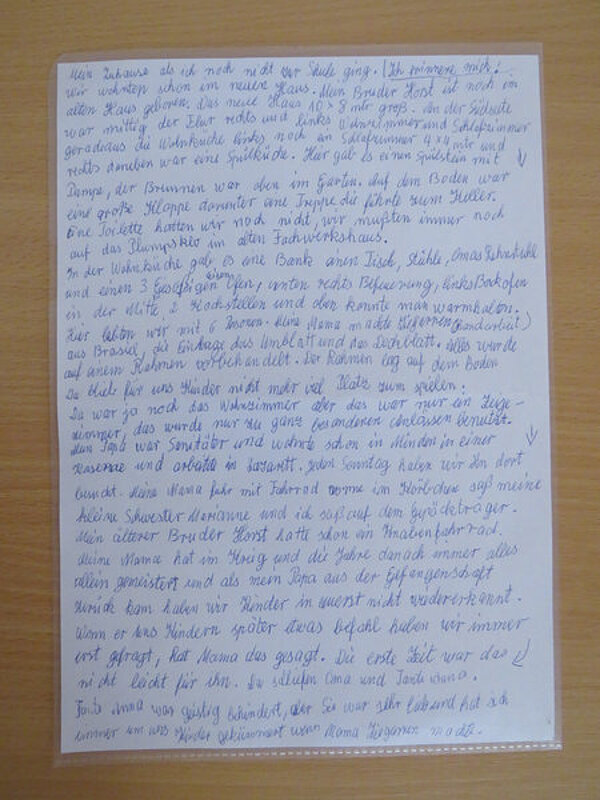 Mein Zuhause als ich noch nicht zur Schule ging. (Ich erinnere mich!
Wir wohnten schon im neuen Haus. Mein Bruder Horst ist noch im
alten Haus geboren. Das neue Haus 10 x 8 mtr groß. An der Südseite
war mittig der Flur rechts und links Wohnzimmer und Schlafzimmer
geradeaus die Wohnküche links noch ein Schlafzimmer 4 x 4 mtr und
rechts daneben war eine Spülküche. Hier gab es einen Spülstein mit ↓
Pumpe, der Brunnen war oben im Garten. Auf dem Boden war
eine große Klappe darunter eine Treppe die führte zum Keller.
Eine Toilette hatten wir noch nicht, wir mußten immer noch
auf das Plumpsklo im alten Fachwerkshaus.
In der Wohnküche gab es eine Bank einen Tisch, Stühle, Omas Lehnstuhl
und einen 3 Ofen, unten rechts Befeuerung, links Backofen
in der Mitte 2 Kochstellen und oben konnte man warmhalten.
Hier lebten wir mit 6 Personen. Meine Mama machte Zigarren (Handarbeit)
aus Brasiel, die Einlage das Umblatt und das Deckblatt. Alles wurde
auf einem Rahmen vorbehandelt. Der Rahmen lag auf dem Boden
Da blieb für uns Kinder nicht mehr viel Platz zum spielen.
Da war ja noch das Wohnzimmer aber das war nur ein
zimmer, das wurde nur zu ganz besonderen Anlässen benutzt.
Mein Papa war Sanitäter und wohnte schon in Minden in einer ↓
Kaserne und arbeitete in Lazarett. Jeden Sonntag haben wir ihn dort
besucht. Meine Mama fuhr mit Fahrrad vorne im Körbchen saß meine
kleine Schwester Marianne und ich saß auf dem Gepäckträger.
Mein älterer Bruder Horst hatte schon ein Knabenfahrrad.
Meine Mama hat im Krieg und die Jahre danach immer alles
allein gemeistert und als mein Papa aus der Gefangenschaft
zurück kam haben wir Kinder in zuerst nicht wiedererkannt.
Wenn er uns Kindern später etwas befahl haben wir immer
erst gefragt, hat Mama das gesagt. Die erste Zeit war das ↓
nicht leicht für ihn. Da schliefen Oma und Tante Anna.
Tante Anna war geistig behindert, aber Sie war sehr lieb und hat sich
immer um uns Kinder gekümmert wenn Mama Zigarren machte.